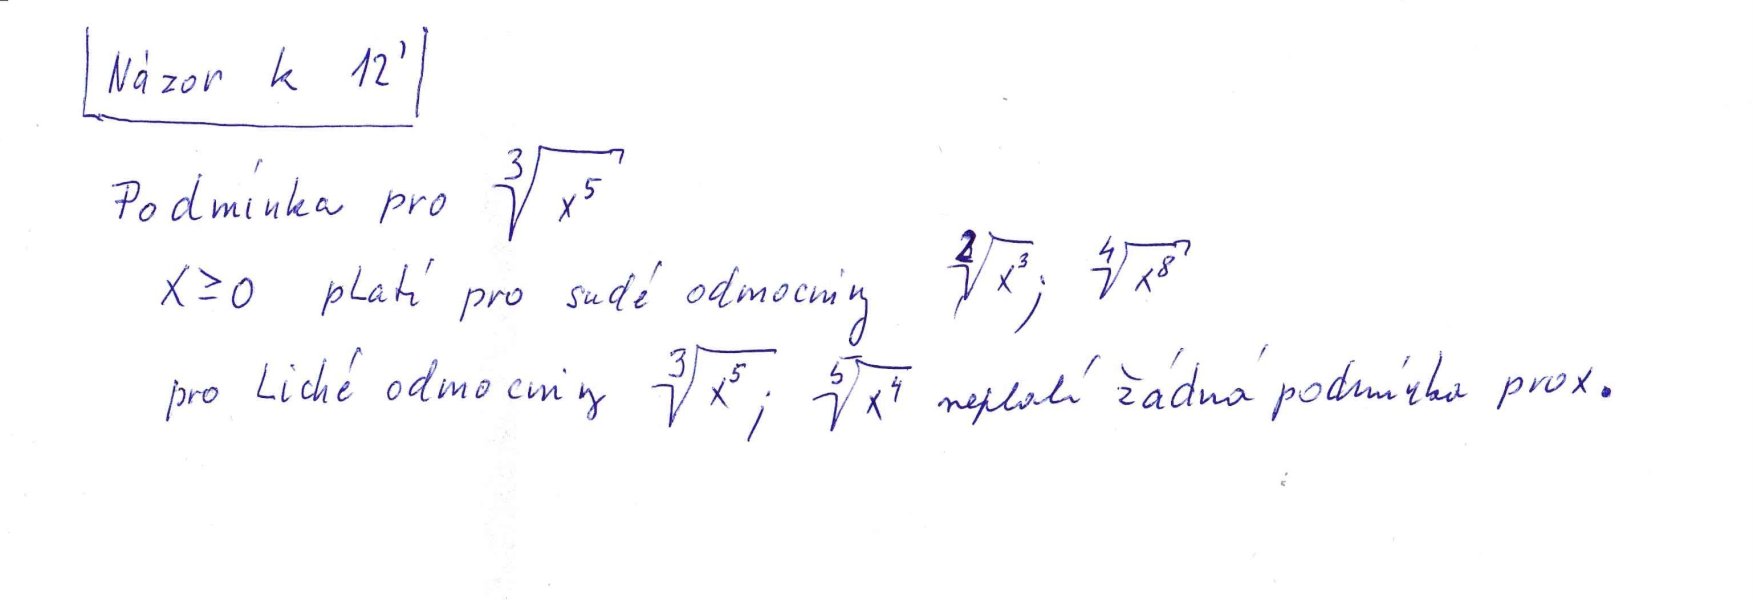 Názor k 12'
Podmínka pro ∛x⁵
x ≥ 0 platí pro sudé odmocniny ²√x³; ⁴√x⁸
pro Liché odmocniny ³√x⁵; ⁵√x⁴ neplatí žádná podmínka pro x.